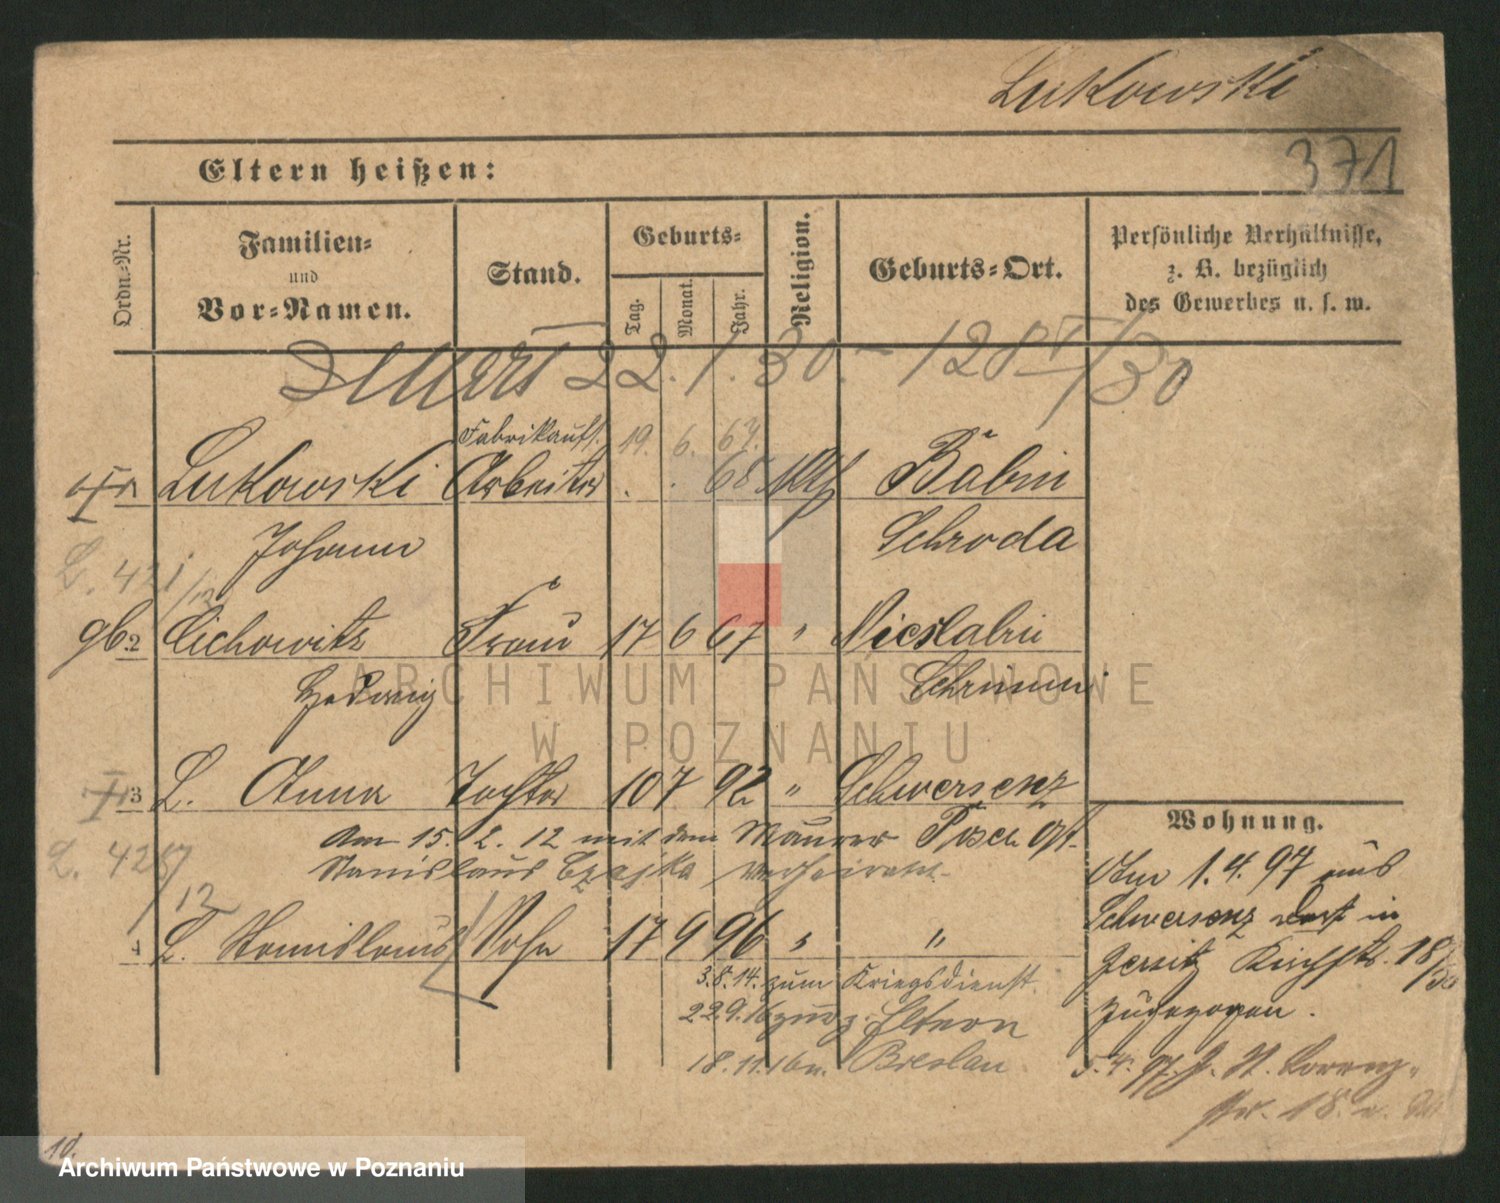 Lukowski
371
Eltern heißen:
Ordn.-Nr.
Familien-
und
Vor-Namen.
Stand.
Geburts-
Tag.
Monat.
Jahr.
Religion.
Geburts-Ort.
Persönliche Verhältnisse,
z. B. bezüglich
des Gewerbes u. s. w.
22. 1. 30. 128 I/30
Fabrikaufs. 19. 6. 67.
Lukowski Arbeiter 68 Kth Babin
Johann Schroda
L. 421/12
gb 2 Cichowitz Frau 17 6 67 "
Hedwig Schrimm
3 L. Anna Tochter 10 7 92 " Schwersenz
Am 15. 2. 12 mit dem Maurer
Stanislaus Czajka verheiratet.
L. 428/12
4 L. Stanislaus Sohn 17 9 96 " "
3.8.14. zum Kriegsdienst.
22.9.16 zur. z. Eltern
18.11.16 n. Breslau
Wohnung.
Am 1.4.97 aus
Schwersenz dort in
Jersitz Kirchstr. 18/30
zugezogen.
5.4.97. J. St. Lorenz-
str. 18.
10.
ARCHIWUM PAŃSTWOWE
W POZNANIU
Archiwum Państwowe w Poznaniu